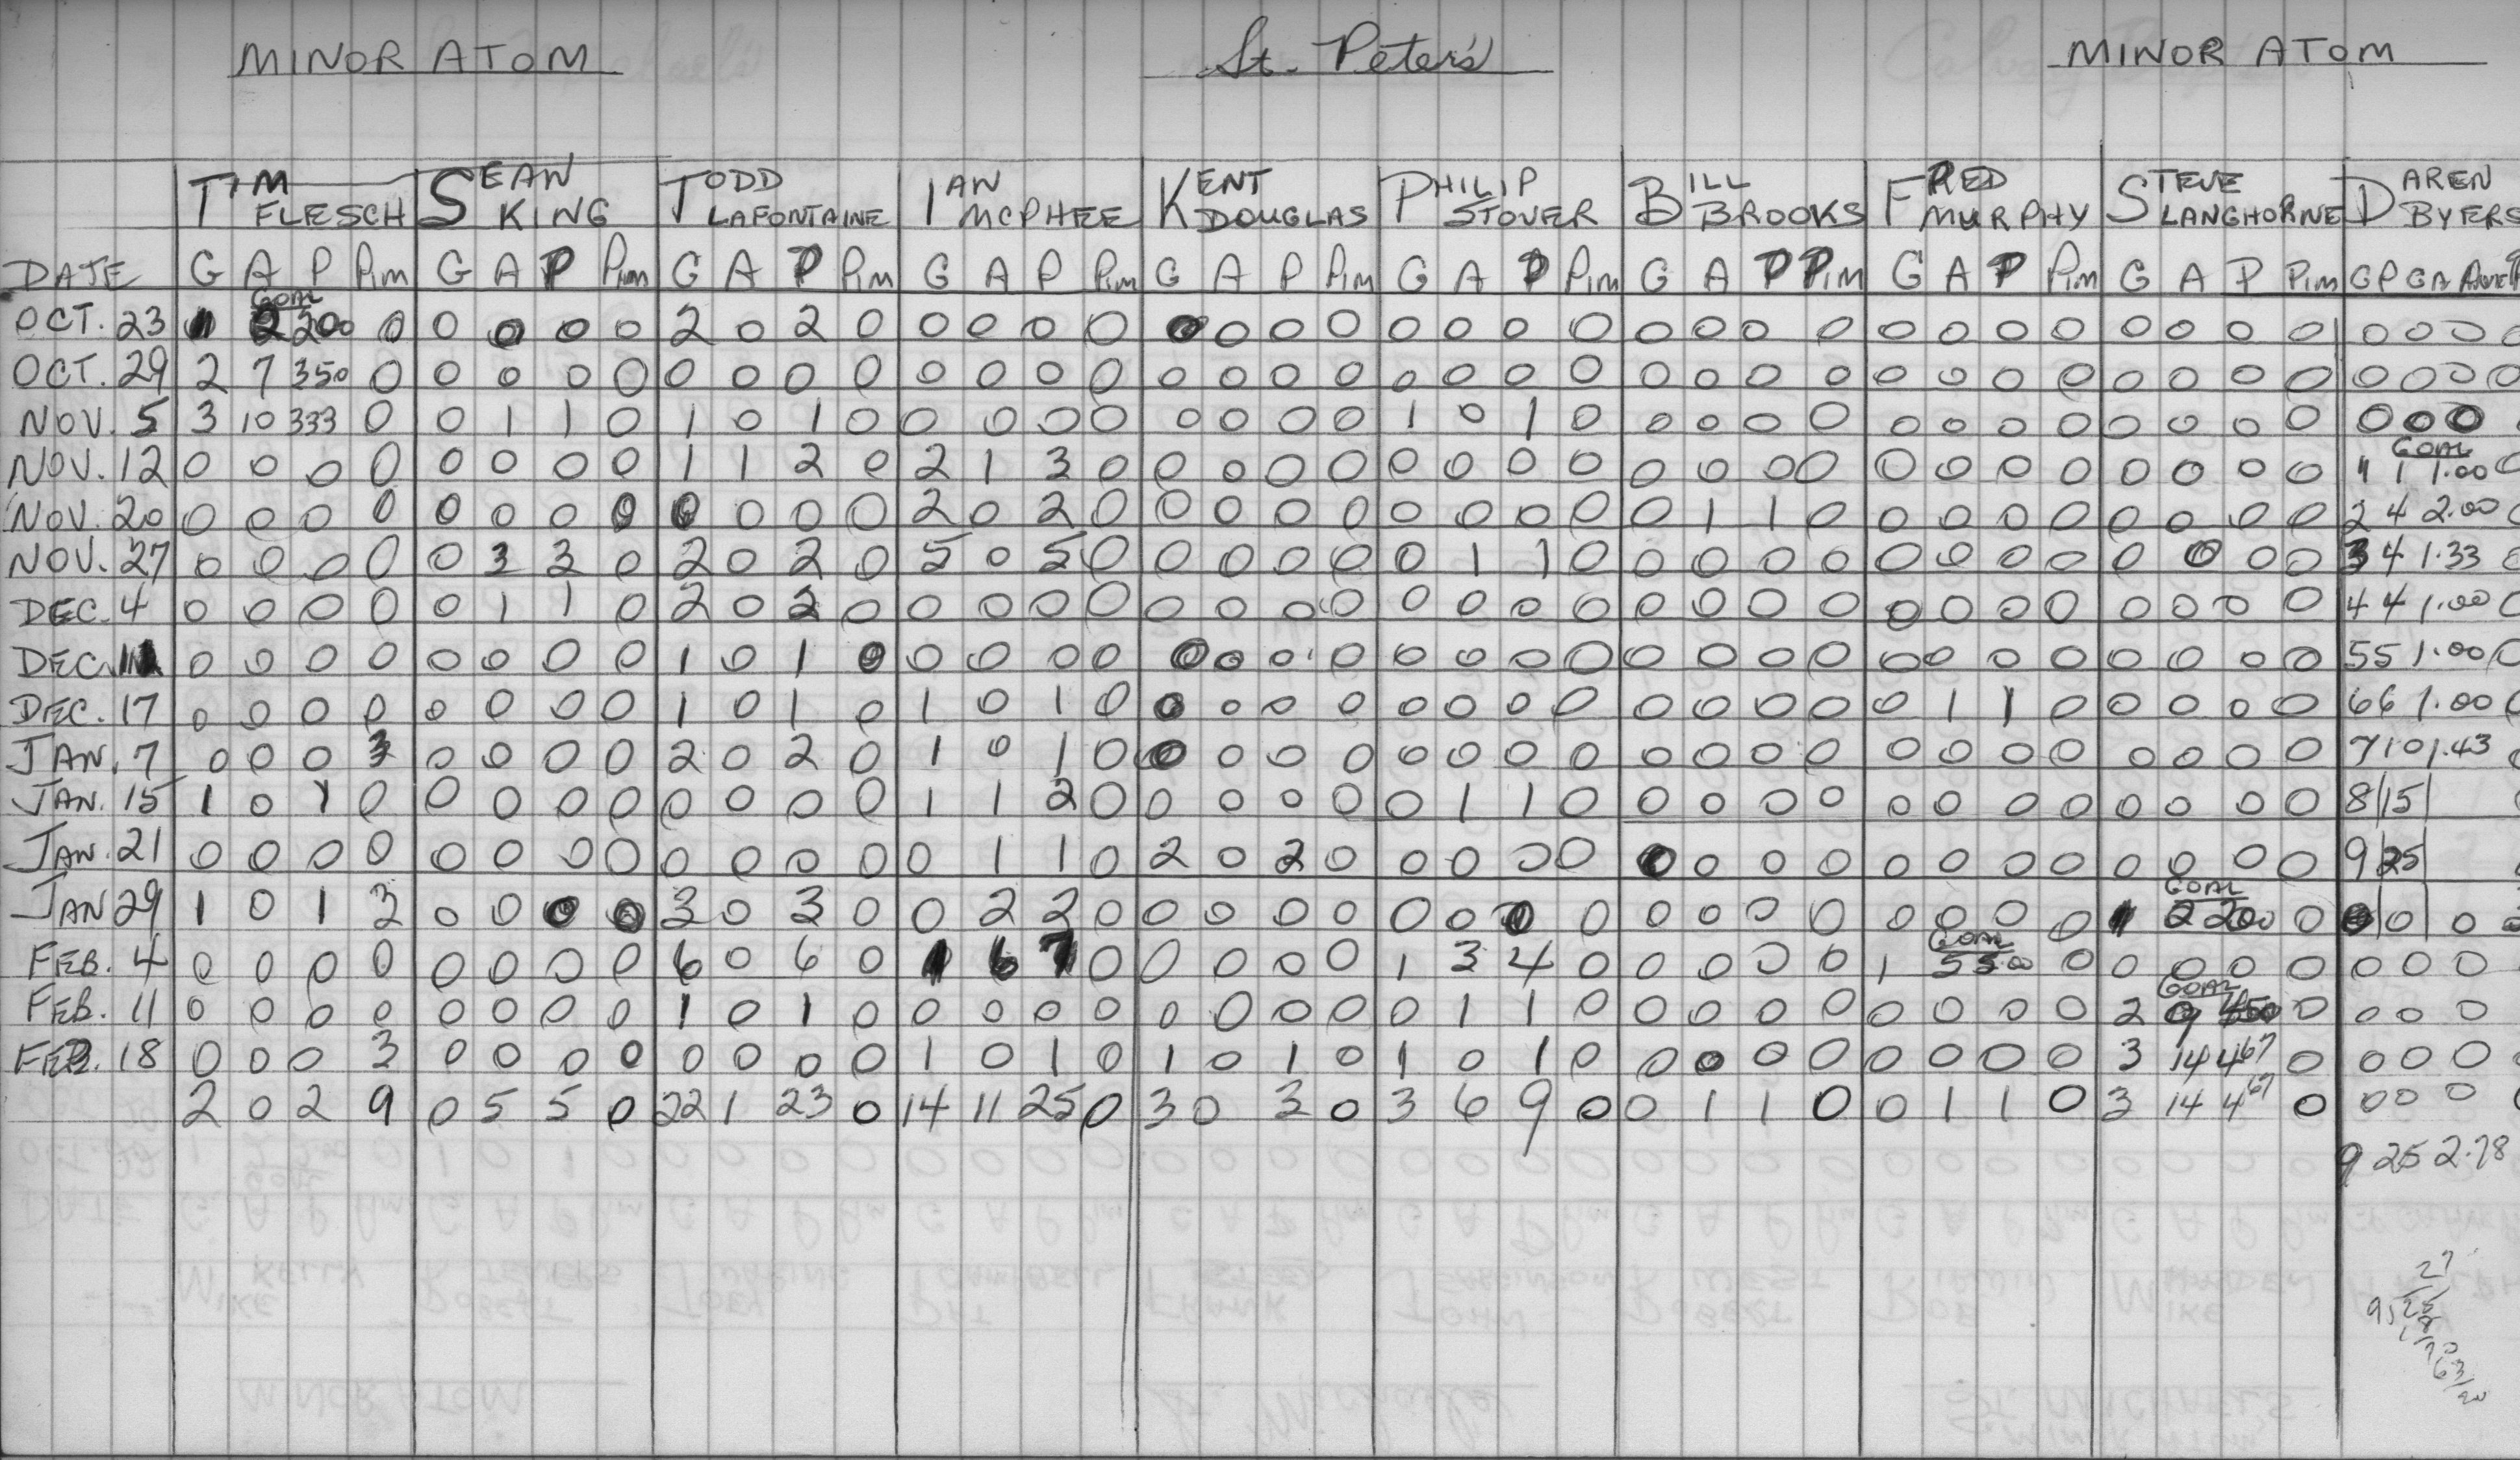 MINOR ATOM St. Peter's MINOR ATOM
TIM FLESCH SEAN KING TODD LAFONTAINE IAN MCPHEE KENT DOUGLAS PHILIP STOVER BILL BROOKS FRED MURPHY STEVE LANGHORNE DAREN BYERS
DATE G A P Pim G A P Pim G A P Pim G A P Pim G A P Pim G A P Pim G A P Pim G A P Pim G A P Pim GP GA Ave
GOAL
OCT. 23 1 2 200 0 0 0 0 0 2 0 2 0 0 0 0 0 0 0 0 0 0 0 0 0 0 0 0 0 0 0 0 0 0 0 0 0 0 0 0 0
OCT. 29 2 7 350 0 0 0 0 0 0 0 0 0 0 0 0 0 0 0 0 0 0 0 0 0 0 0 0 0 0 0 0 0 0 0 0 0 0 0 0 0
NOV. 5 3 10 333 0 0 1 1 0 1 0 1 0 0 0 0 0 0 0 0 0 1 0 1 0 0 0 0 0 0 0 0 0 0 0 0 0 0 0 0
GOAL
NOV. 12 0 0 0 0 0 0 0 0 1 1 2 0 2 1 3 0 0 0 0 0 0 0 0 0 0 0 0 0 0 0 0 0 0 0 0 0 1 1 1.00 0
NOV. 20 0 0 0 0 0 0 0 0 0 0 0 0 2 0 2 0 0 0 0 0 0 0 0 0 0 1 1 0 0 0 0 0 0 0 0 0 2 4 2.00 0
NOV. 27 0 0 0 0 0 3 3 0 2 0 2 0 5 0 5 0 0 0 0 0 0 1 1 0 0 0 0 0 0 0 0 0 0 0 0 0 3 4 1.33 0
DEC. 4 0 0 0 0 0 1 1 0 2 0 2 0 0 0 0 0 0 0 0 0 0 0 0 0 0 0 0 0 0 0 0 0 0 0 0 0 4 4 1.00 0
DEC. 11 0 0 0 0 0 0 0 0 1 0 1 0 0 0 0 0 0 0 0 0 0 0 0 0 0 0 0 0 0 0 0 0 0 0 0 0 5 5 1.00 0
DEC. 17 0 0 0 0 0 0 0 0 1 0 1 0 1 0 1 0 0 0 0 0 0 0 0 0 0 0 0 0 0 1 1 0 0 0 0 0 6 6 1.00 0
JAN. 7 0 0 0 3 0 0 0 0 2 0 2 0 1 0 1 0 0 0 0 0 0 0 0 0 0 0 0 0 0 0 0 0 0 0 0 0 7 10 1.43 0
JAN. 15 1 0 1 0 0 0 0 0 0 0 0 0 1 1 2 0 0 0 0 0 0 1 1 0 0 0 0 0 0 0 0 0 0 0 0 0 8 15 0
JAN. 21 0 0 0 0 0 0 0 0 0 0 0 0 0 1 1 0 2 0 2 0 0 0 0 0 0 0 0 0 0 0 0 0 0 0 0 0 9 25 0
GOAL
JAN 29 1 0 1 3 0 0 0 0 3 0 3 0 0 2 2 0 0 0 0 0 0 0 0 0 0 0 0 0 0 0 0 0 1 2 200 0 0 0 0 0
GOAL
FEB. 4 0 0 0 0 0 0 0 0 6 0 6 0 1 6 7 0 0 0 0 0 1 3 4 0 0 0 0 0 1 5 5.00 0 0 0 0 0 0 0 0
GOAL
FEB. 11 0 0 0 0 0 0 0 0 1 0 1 0 0 0 0 0 0 0 0 0 0 1 1 0 0 0 0 0 0 0 0 0 2 9 450 0 0 0 0
FEB. 18 0 0 0 3 0 0 0 0 0 0 0 0 1 0 1 0 1 0 1 0 1 0 1 0 0 0 0 0 0 0 0 0 3 14 467 0 0 0 0
2 0 2 9 0 5 5 0 22 1 23 0 14 11 25 0 3 0 3 0 3 6 9 0 0 1 1 0 0 1 1 0 3 14 467 0 0 0 0
9 25 2.78
27